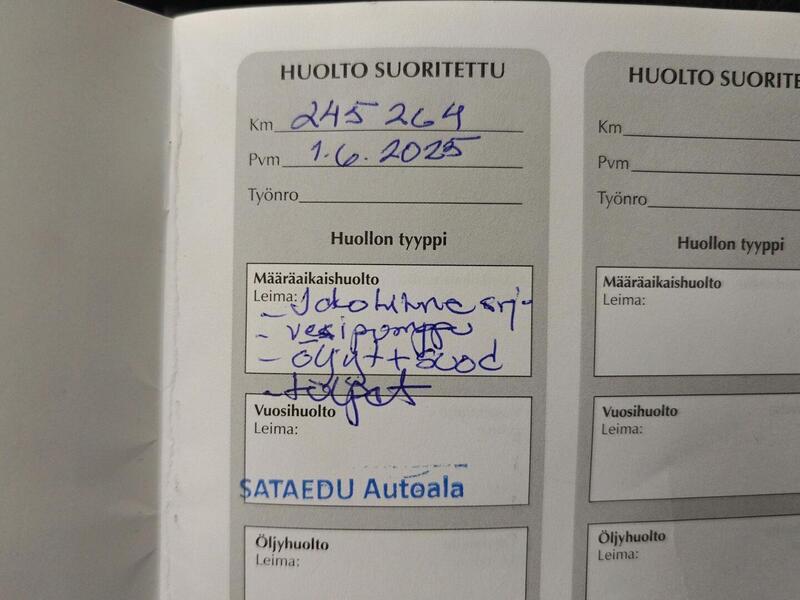 HUOLTO SUORITETTU
Km 245 264
Pvm 1.6.2025
Työnro
Huollon tyyppi
Määräaikaishuolto
Leima:
- vesipumppu
- öljyt + suod
Vuosihuolto
Leima:
SATAEDU Autoala
Öljyhuolto
Leima:
HUOLTO SUORITE
Km
Pvm
Työnro
Huollon tyyppi
Määräaikaishuolto
Leima:
Vuosihuolto
Leima:
Öljyhuolto
Leima: